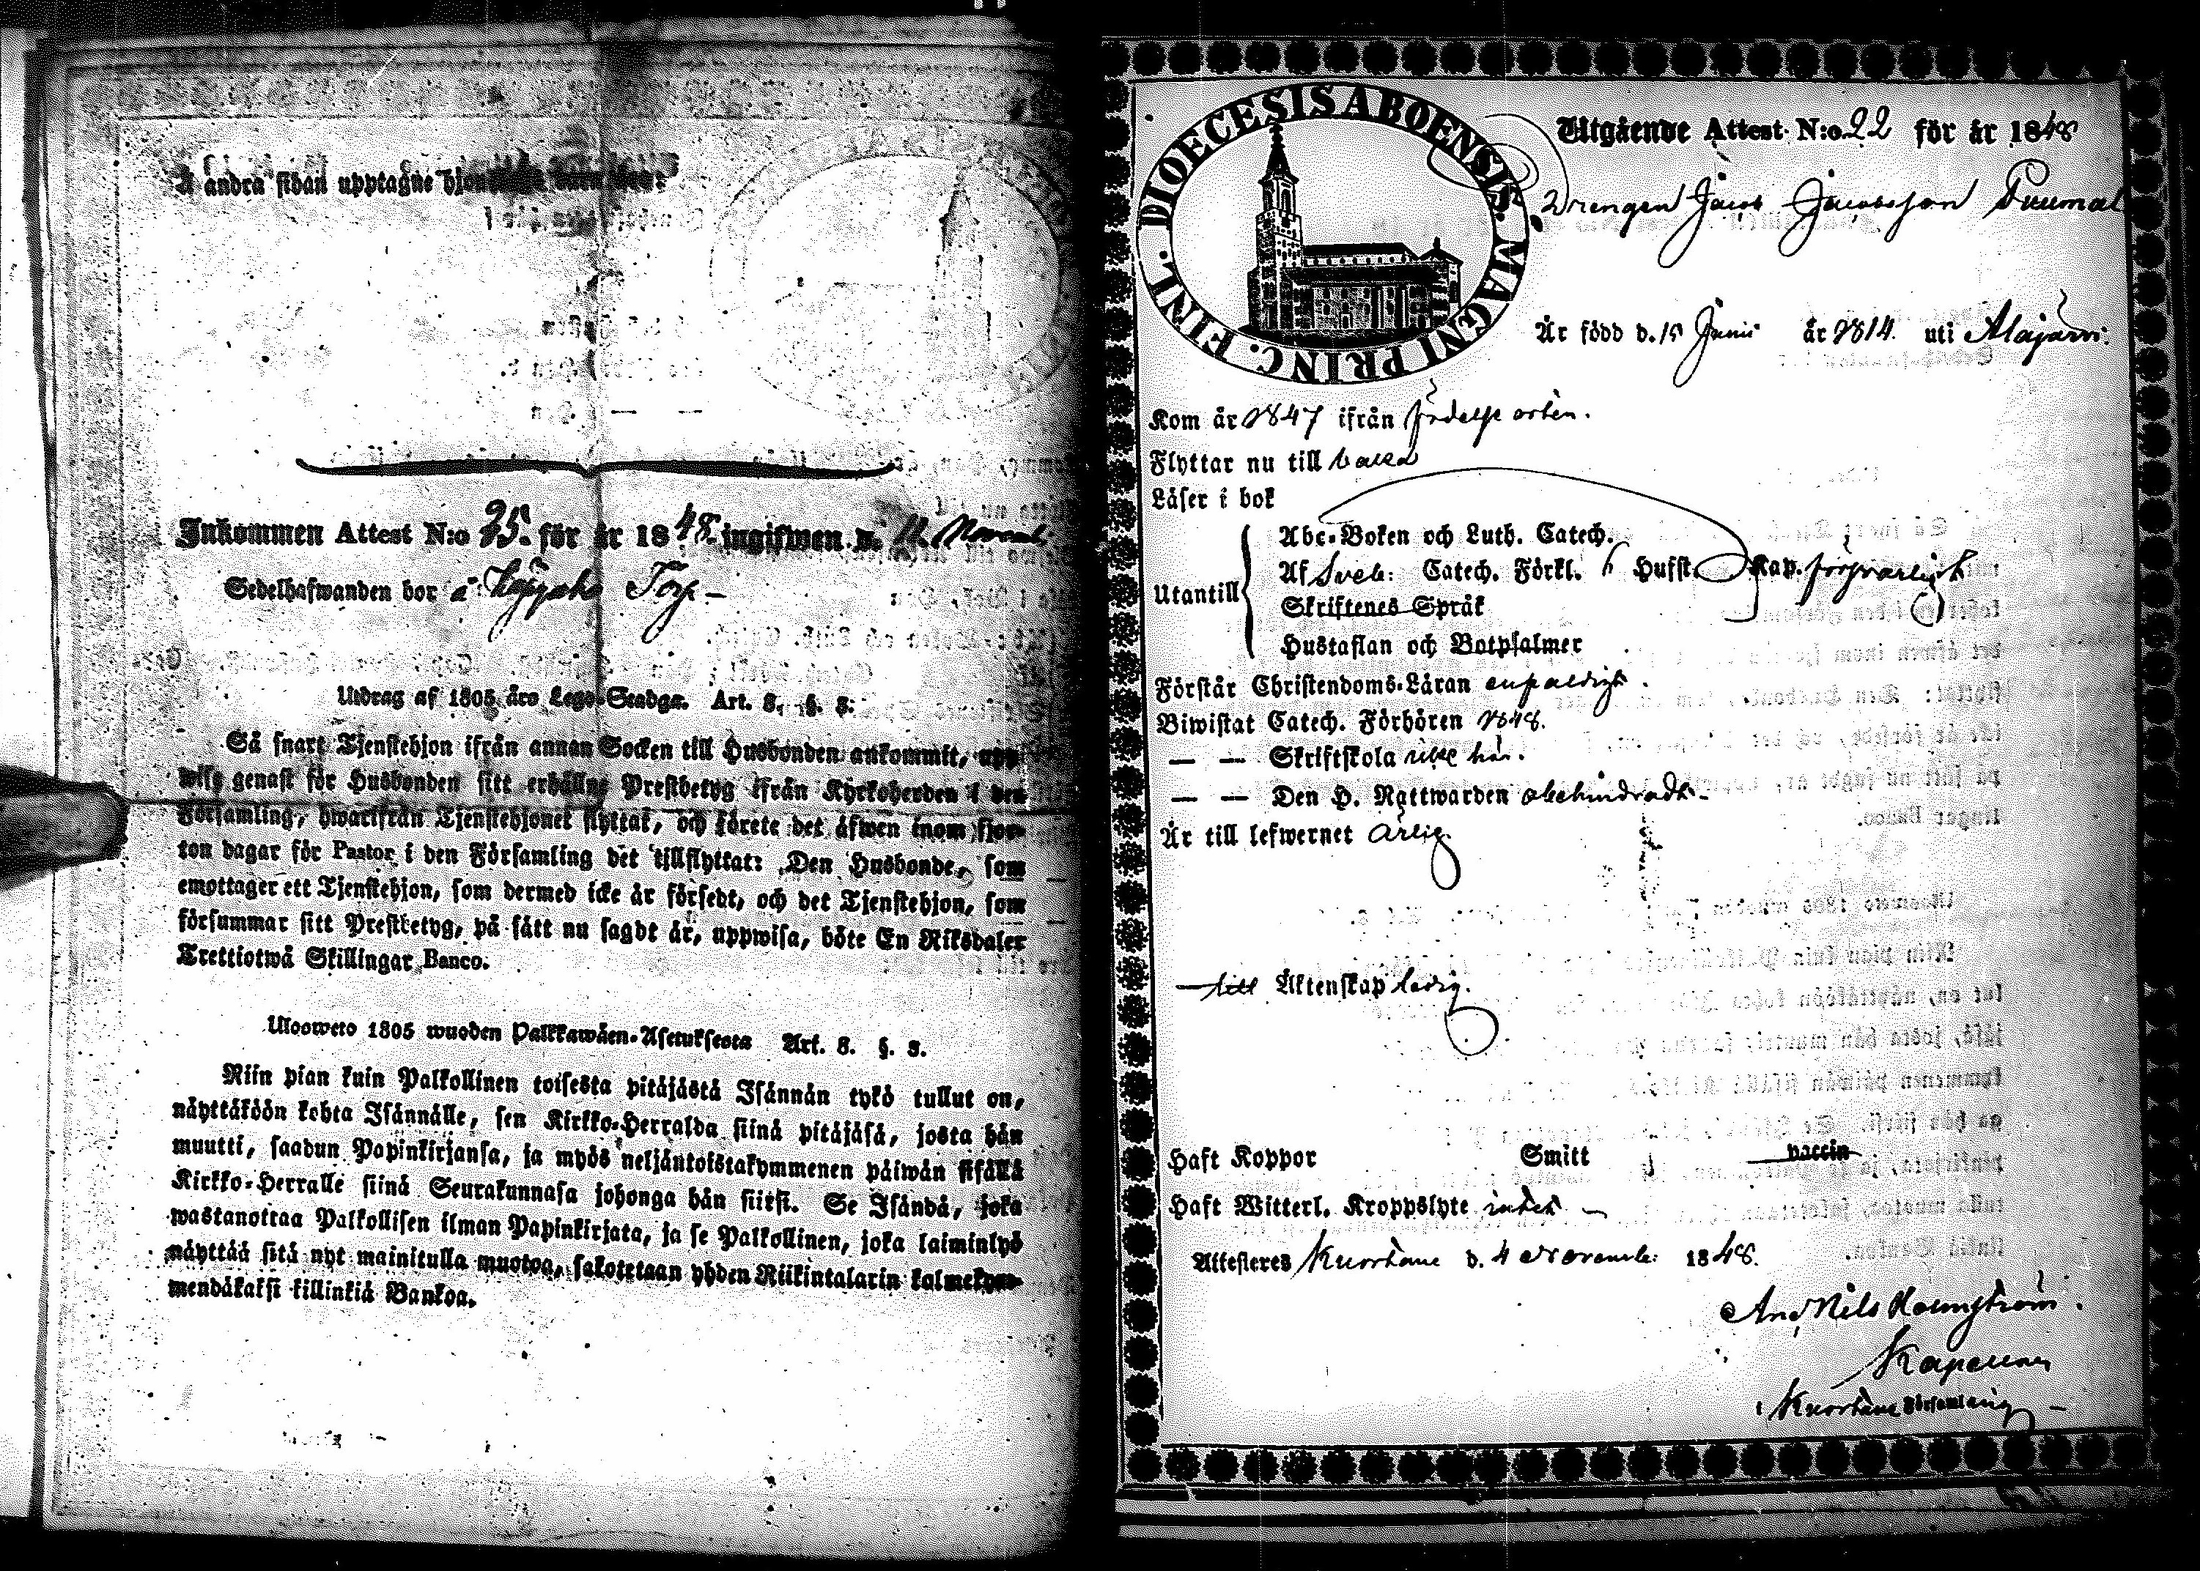 Å andra sidan upptagne
Inkommen Attest N:o 25. för år 1848 ingifwen d. 11 Novemb.
Sedelhafwanden bor å Torp
Utdrag af 1805 års Lego-Stadga. Art. 8. §. 3.
Så snart Tjenstehjon ifrån annan Socken till Husbonden ankommit, upp-
wise genast för Husbonden sitt erhållne Prestbetyg ifrån Kyrkoherden i den
Församling, hwarifrån Tjenstehjonet flyttat, och förete det äfwen inom fjor-
ton dagar för Pastor i den Församling det tillflyttat: Den Husbonde, som
emottager ett Tjenstehjon, som dermed icke är försedt, och det Tjenstehjon, som
försummar sitt Prestbetyg, på sätt nu sagdt är, uppwisa, böte En Riksdaler
Trettiotwå Skillingar Banco.
Uloosweto 1805 wuoden Palkkawäen-Asetuksesta Art. 8. §. 3.
Niin pian kuin Palkollinen toisesta pitäjästä Isännän tykö tullut on,
näyttäköön kohta Isännälle, sen Kirkko-Herralda siinä pitäjäsä, josta hän
muutti, saadun Papinkirjansa, ja myös neljäntoistakymmenen päiwän sisällä
Kirkko-Herralle siinä Seurakunnasa johonga hän siirsi. Se Isändä, joka
wastanottaa Palkollisen ilman Papinkirjata, ja se Palkollinen, joka laiminlyö
näyttää sitä nyt mainitulla muotoa, sakotetaan yhden Riikintalarin kolmekym-
mendäkaksi killinkiä Bankoa.
DIOECESIS ABOENSIS. MAGNI PRINC. FINL.
Utgående Attest N:o 22 för år 1848
Drengen Jacob Jacobsson
Är född d. 15 Junii år 1814. uti Alajärvi.
Kom år 1847 ifrån födelse orten.
Flyttar nu till baka
Läser i bok
Abc-Boken och Luth. Catech.
Utantill Af Sveb: Catech. Förkl. 6 Hufst. Kap. försvarligt
Skriftenes Språk
Hustaflan och Botpsalmer
Förstår Christendoms-Läran enfaldigt.
Biwistat Catech. Förhören 1848.
— — Skriftskola icke här.
— — Den H. Nattwarden obehindradt.
Är till lefwernet ärlig.
— till Äktenskap ledig.
Haft Koppor Smitt vaccin
Haft Witterl. Kroppslyte intet —
Attesteres Kuortane d. 4 Novemb: 1848.
And Nils Holmström.
Kapellan
i Kuortane Församling